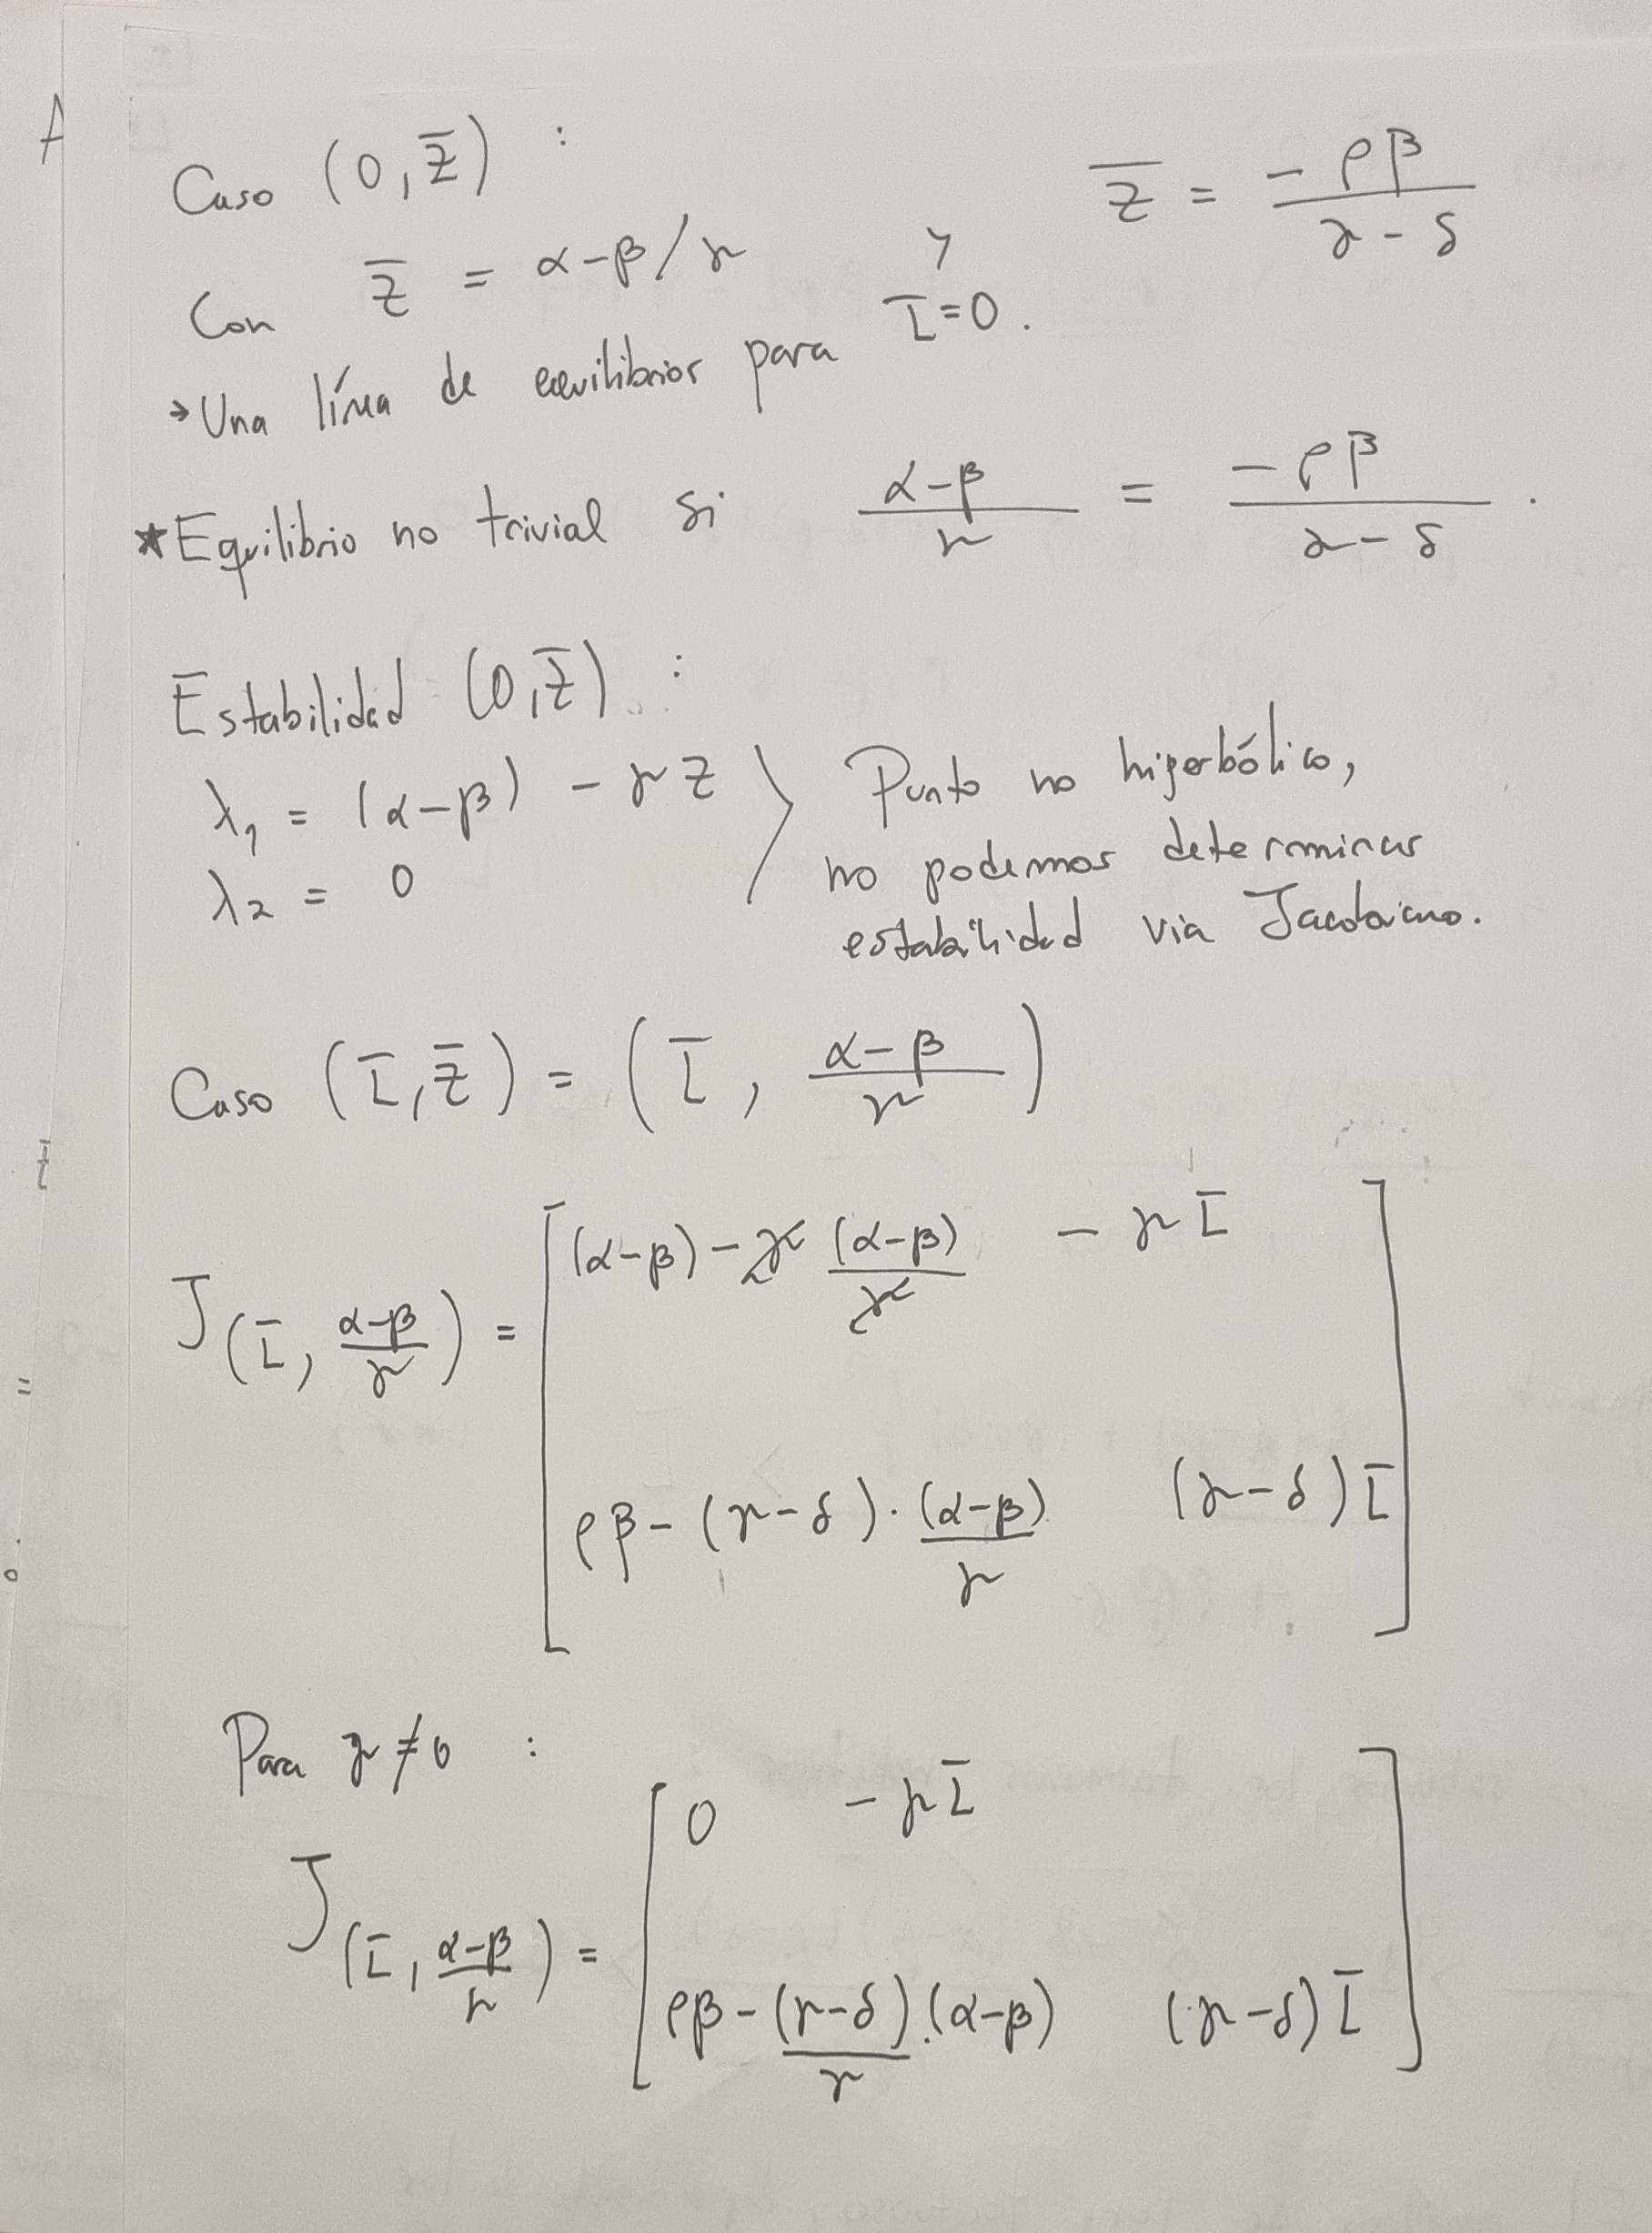 A
Caso (0, z̄) :
z̄ = -ρβ / (γ-δ)
Con z̄ = α-β/γ y
→ Una línea de equilibrios para Ī=0.
★ Equilibrio no trivial si (α-β)/γ = -ρβ/(γ-δ) .
Estabilidad (0, z̄) :
λ₁ = (α-β) - γz } Punto no hiperbólico,
λ₂ = 0 no podemos determinar
estabilidad via Jacobiano.
Caso (Ī, z̄) = (Ī, (α-β)/γ)
J(Ī, (α-β)/γ) = [ (α-β) - γ (α-β)/γ   - γĪ
ρβ - (γ-δ) · (α-β)/γ   (γ-δ)Ī ]
Para γ≠0 :
J(Ī, (α-β)/γ) = [ 0   - γĪ
ρβ - (γ-δ)/γ · (α-β)   (γ-δ)Ī ]